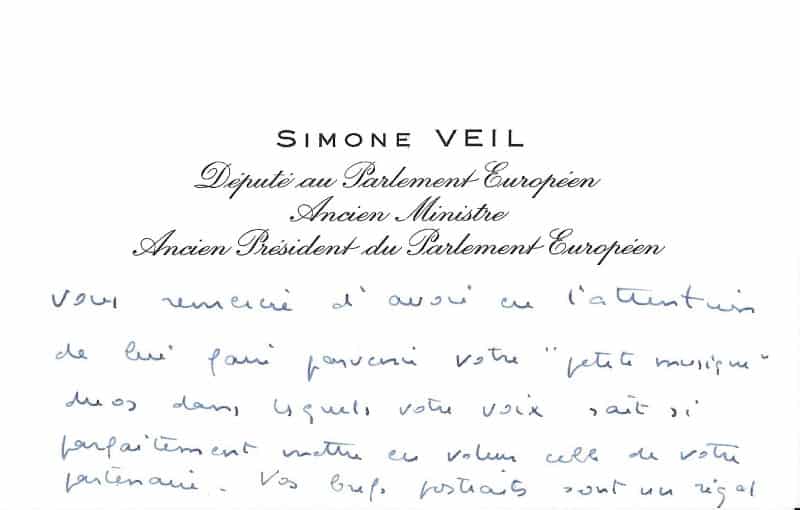 SIMONE VEIL
Député au Parlement Européen
Ancien Ministre
Ancien Président du Parlement Européen
vous remercie d'avoir eu l'attention
de lui faire parvenir votre "petite musique"
duos dans lesquels votre voix sait si
parfaitement mettre en valeur celle de votre
partenaire. Vos brefs portraits sont un régal